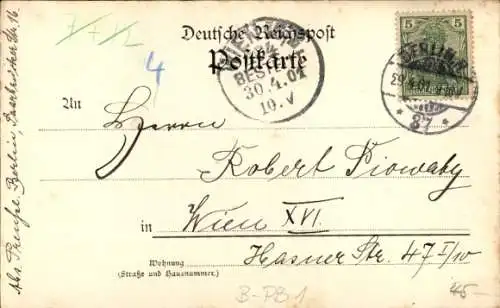 7/7 12
Deutsche Reichspost
Postkarte
4
BESTELLT
30.4.01
10.V
5
5
BERLIN
29.4.01
* 37 *
An
Herrn
Robert Piowaty
in Wien XVI.
Wohnung
(Straße und Hausnummer.)
Hasner Str. 47 I/10
B-PB1
45-
Berlin,